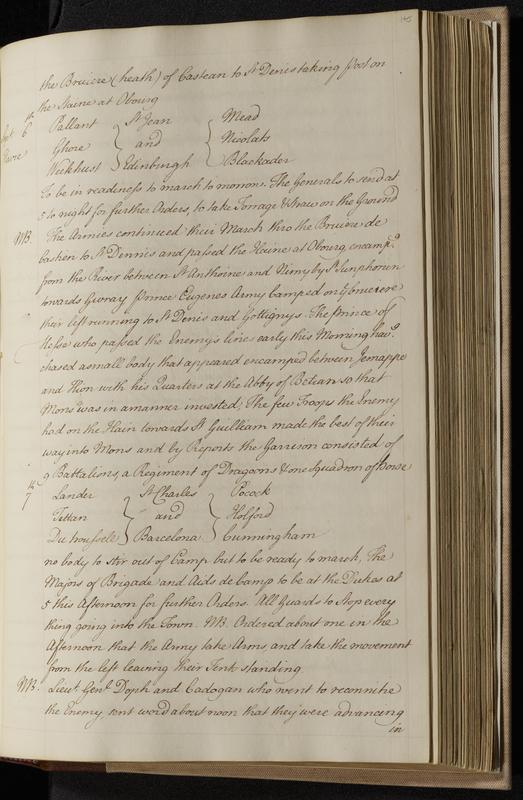 145
the Bruiere (heath) of Casteau to St Denis taking Post on
the Haine at Obourg
Sept 6th Pallant St Jean Mead
Havre Ghore and Nicolats
Weekhust Edinburgh Blackader
To be in readiness to march to morrow. The Generals to send at
5 to night for further Orders, to take Forrage & Straw on the Ground
NB. The Armies continued their March thro the Bruiere de
Castien to St Dennis and passed the Haine at Obourg, encampd
from the River between St Anthoine and Nimy by St Simphorien
towards Givray Prince Eugenes Army Camped on ye bruierre
their left running to St Denis and Gottignys. The Prince of
Hesse who passed the Enemys line early this Morning havg
chased a small body that appeared encamped between Jemappe
and Hion with his Quarters at the Abby of Betian so that
Mons was in a manner invested; The few Troops the Enemy
had on the Plain towards St Guilliam made the best of their
way into Mons and by Reports the Garrison consisted of
9 Battalions, a Regiment of Dragoons & one Squadron of Horse
7th Lander St Charles Pocock
Tettan and Holford
Du troussele Barcelona Cunningham
no body to stir out of Camp but to be ready to march, The
Majors of Brigade and Aids de Camp to be at the Dukes at
5 this Afternoon for further Orders. All Guards to Stop every
thing going into the Town. NB. Ordered about one in the
Afternoon that the Army take Arms, and take the movement
from the left leaving their Tents standing
NB. Lieut. Genl Doph and Cadogan who went to reconnitre
the Enemy sent word about noon that they were advancing
in